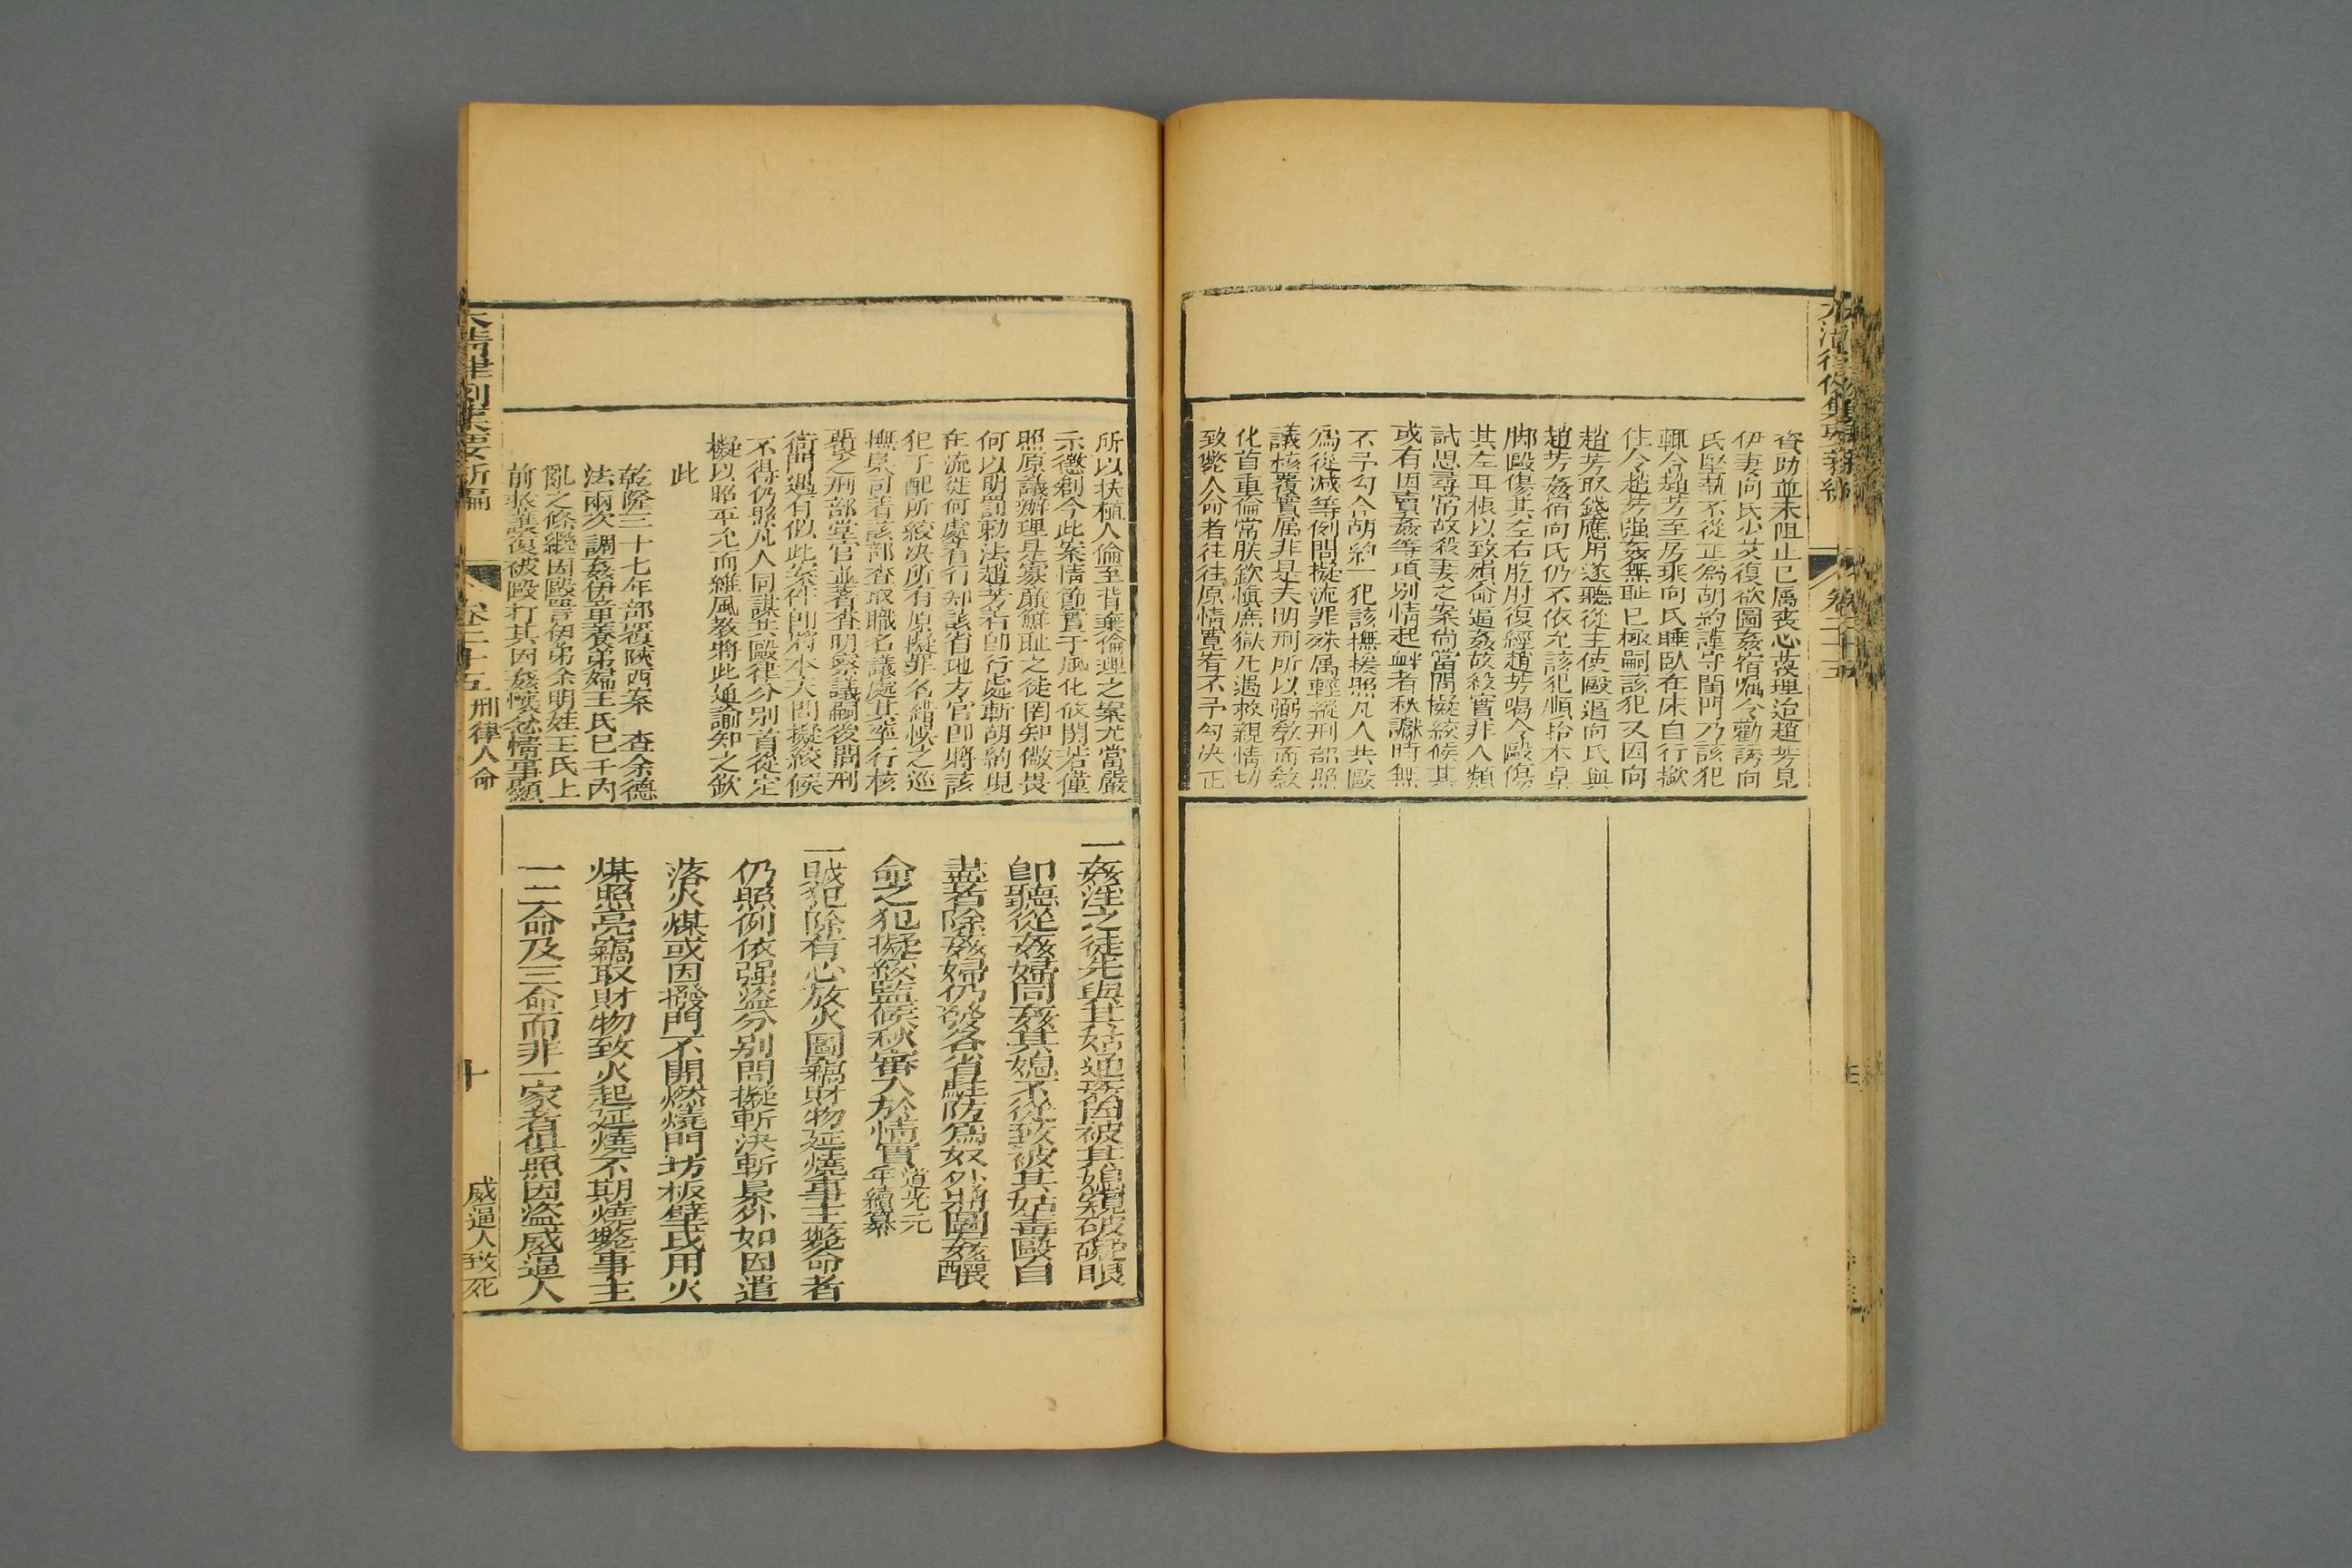 大清律例集要新編
卷二十五
資助並未阻止已属丧心蔑理迨趙芳見
伊妻向氏少艾復欲圖姦宿嘱令勸誘向
氏堅執不從正爲胡約謹守閨門乃該犯
輒令趙芳至房乘向氏睡臥在床自行撳
住令趙芳强姦無耻已極嗣該犯又因向
趙芳取錢應用遂聽從主使毆逼向氏與
趙芳姦宿向氏仍不依允該犯順拾木桌
脚毆傷其左右肐肘復經趙芳喝令毆傷
其左耳根以致殞命逼姦故殺實非人類
試思尋常故殺妻之案尚當問擬絞候其
或有因賣姦等項别情起衅者秋讞時無
不予勾今胡約一犯該撫援照凡人共毆
爲從减等例問擬流罪殊属輕縱刑部照
議核覆實属非是夫明刑所以弼教而敎
化首重倫常朕欽慎庶獄凡遇救親情切
致斃人命者往往原情寛宥不予勾决正
所以扶植人倫至背棄倫理之案尤當嚴
示懲創今此案情節實于風化攸關若僅
照原議辦理是寡廉鮮耻之徒罔知儆畏
何以明罰勅法趙芳着卽行處斬胡約現
在流徙何處着行知該省地方官卽將該
犯于配所絞决所有原擬罪名錯悞之巡
撫臬司着該部查取職名議處其率行核
覆之刑部堂官並著查明察議嗣後問刑
衙門遇有似此案件卽將本夫問擬絞候
不得仍照凡人同謀共毆律分别首從定
擬以昭平允而維風教將此通諭知之欽
此
乾隆三十七年部覆陝西案　查余德
法兩次調姦伊童養弟婦王氏已干内
亂之條繼因毆詈伊弟余明娃王氏上
前救護復被毆打其因姦懷忿情事顯
一姦淫之徒先與其姑通姦因被其媳窺破碍眼
卽聽從姦婦同姦其媳不從致被其姑毒毆自
盡者除姦婦仍發各省駐防爲奴外將圖姦釀
命之犯擬絞監候秋審入於情實道光元年續纂
一賊犯除有心放火圖竊財物延燒事主斃命者
仍照例依强盗分别問擬斬決斬梟外如因遺
落火煤或因撥門不開燃燒門坊板壁或用火
煤照亮竊取財物致火起延燒不期燒斃事主
一二命及三命而非一家者俱照因盗威逼人
大清律例集要新編
卷二十五
刑律人命
十
威逼人致死